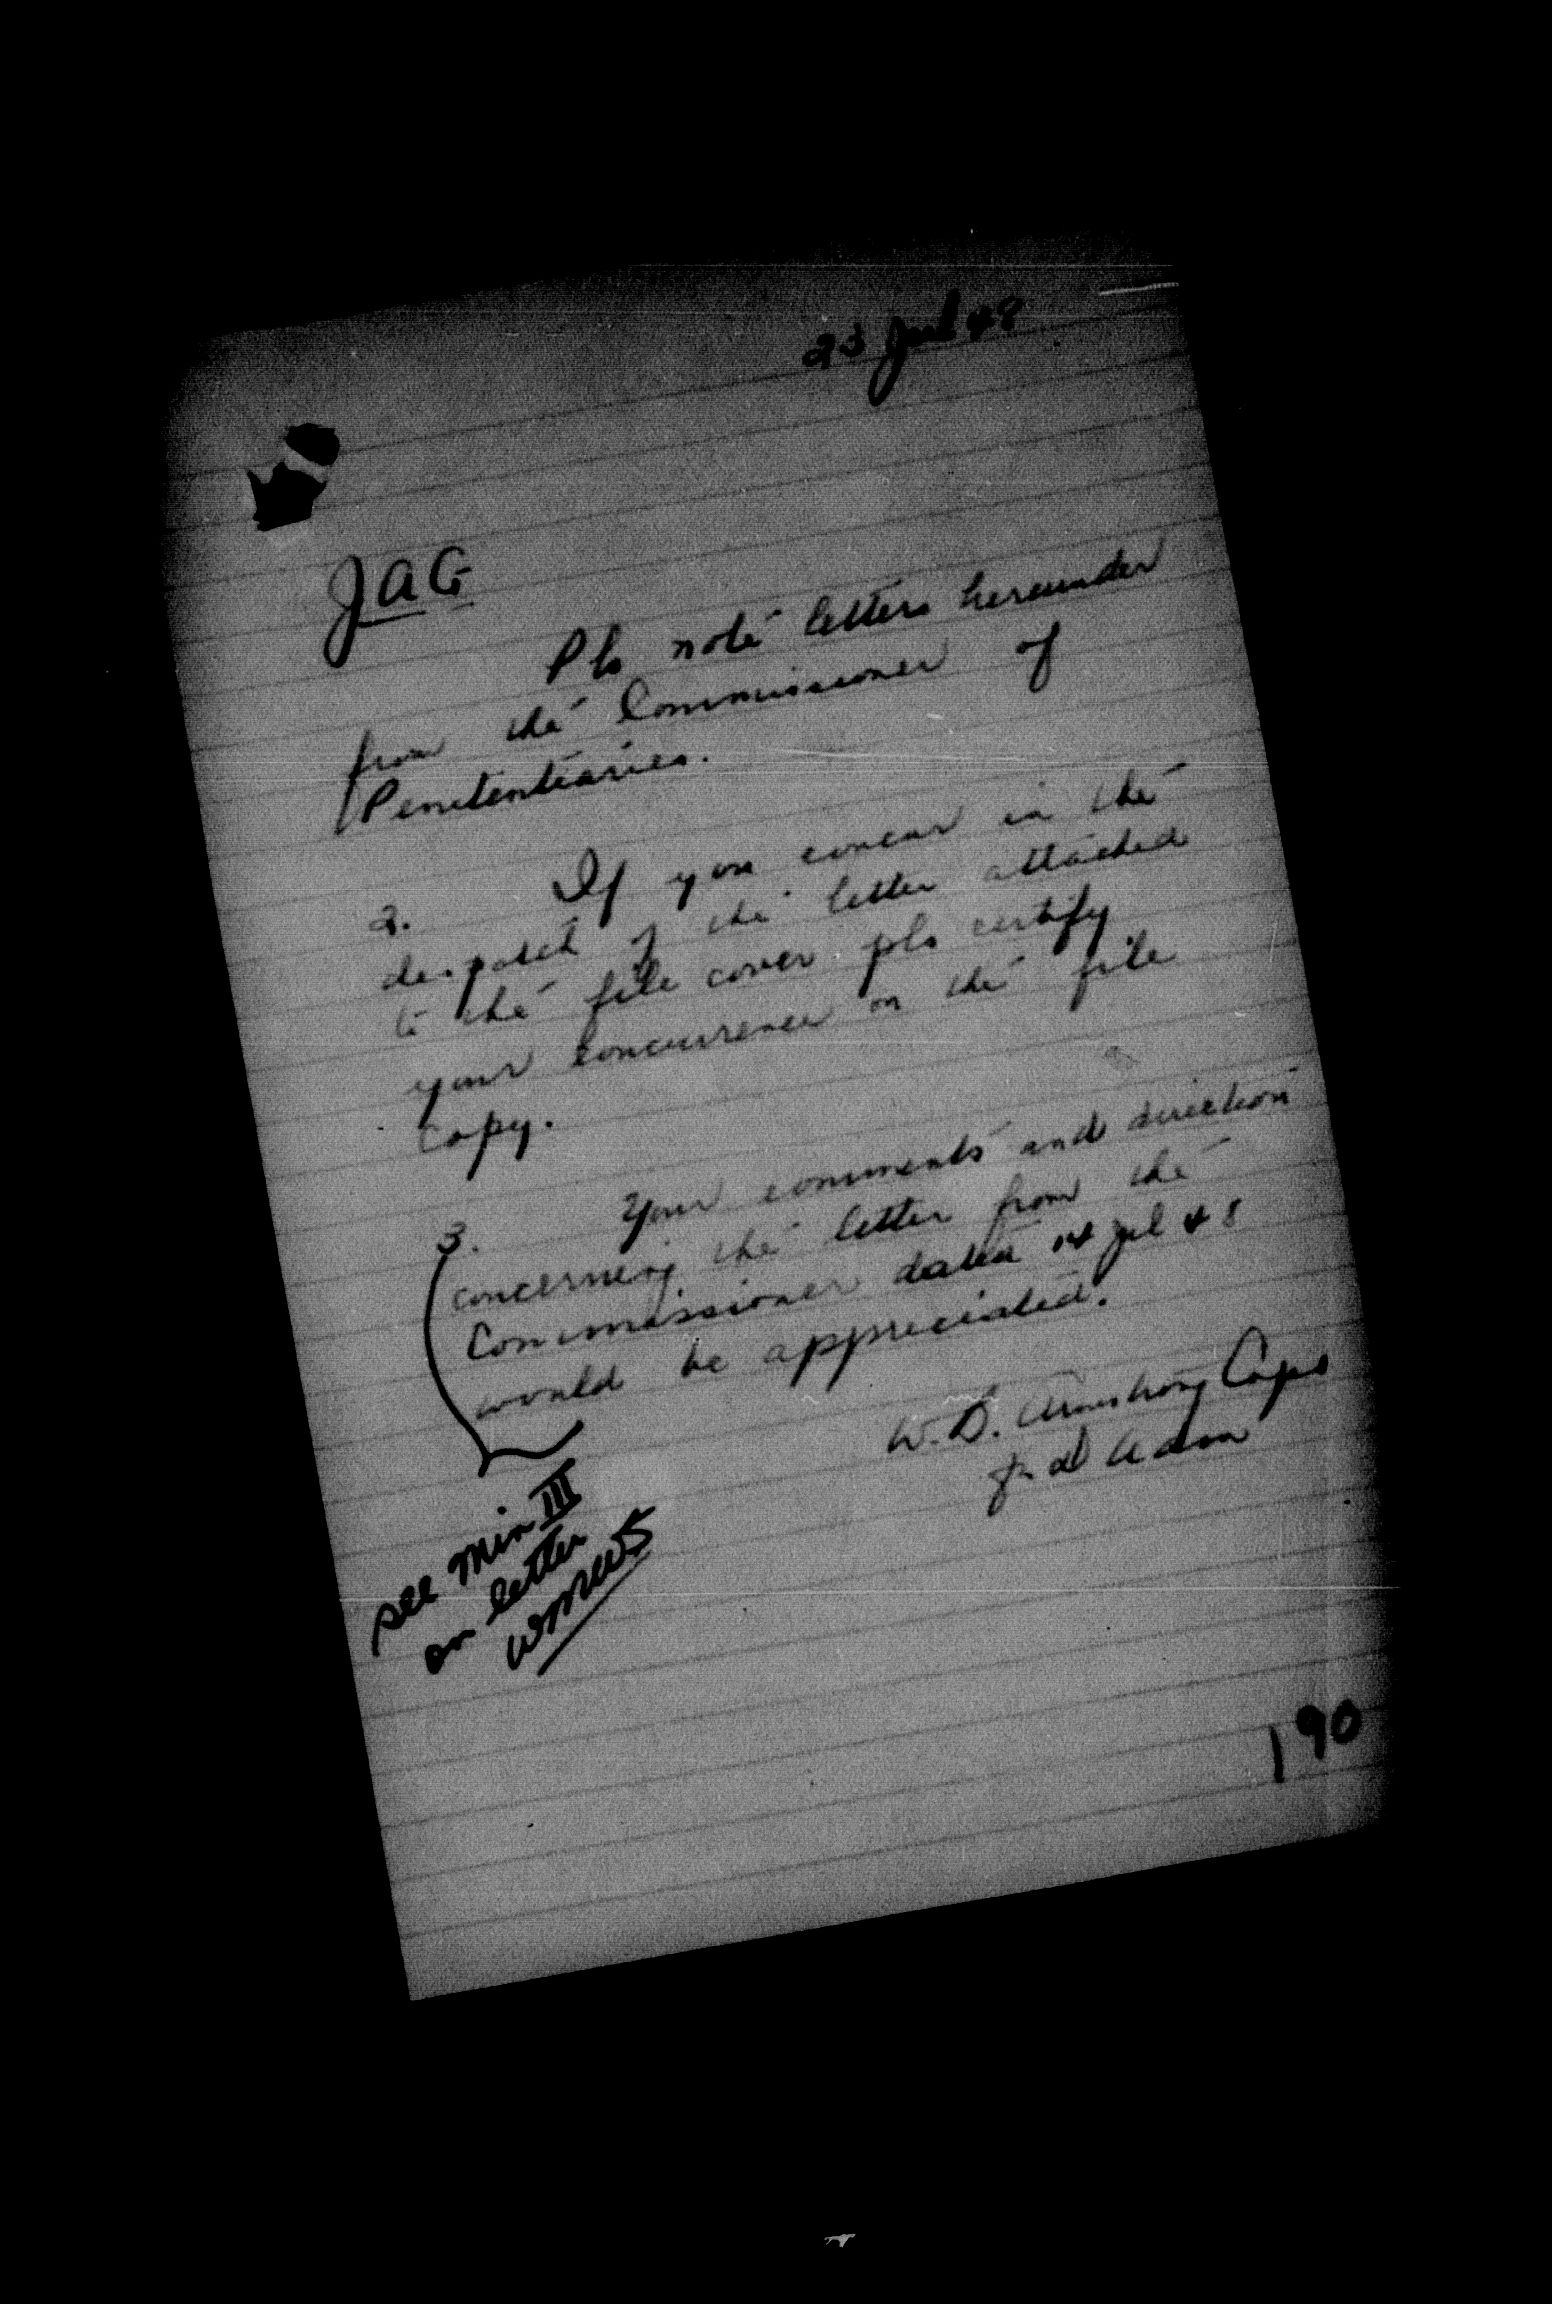 23 Jul 48
JAG
Pls note letters hereunder
from the Commissioner of
Penitentiaries.
2. If you concur in the
despatch of the letter attached
to the file cover pls certify
your concurrence on the file
copy.
3. Your comments and direction
concerning the letter from the
Commissioner dated 14 Jul 48
would be appreciated.
W.D. Armstrong Capt
see min III
on letter
190